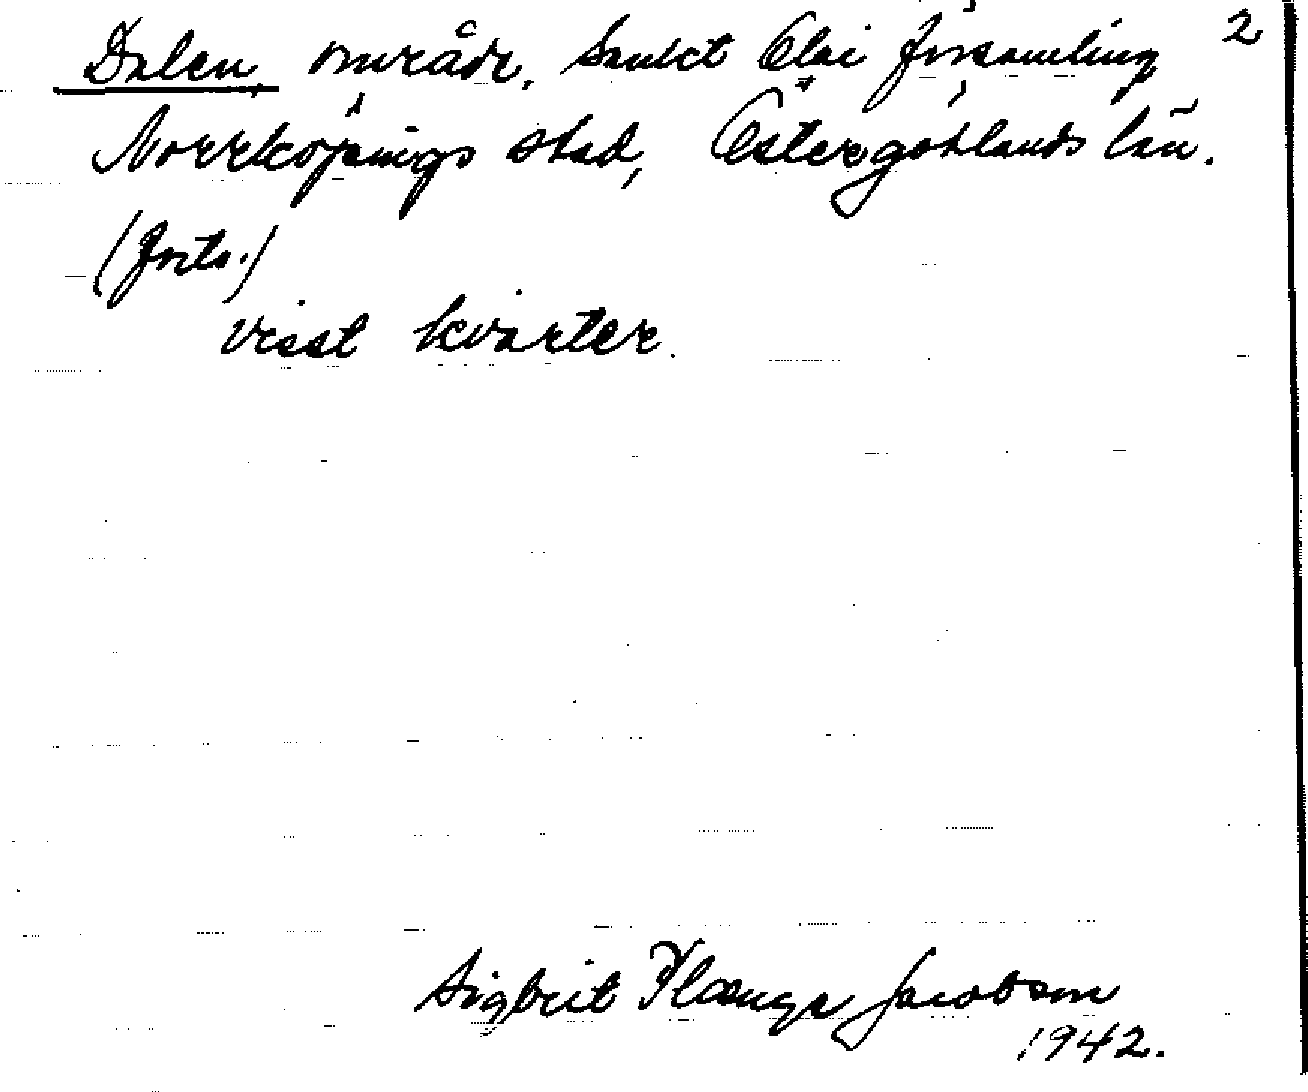 Dalen, område, Sankt Olai församling 2
Norrköpings stad, Östergötlands län.
(forts.)
visst kvarter.
Sigbrit Plænge Jacobson
1942.